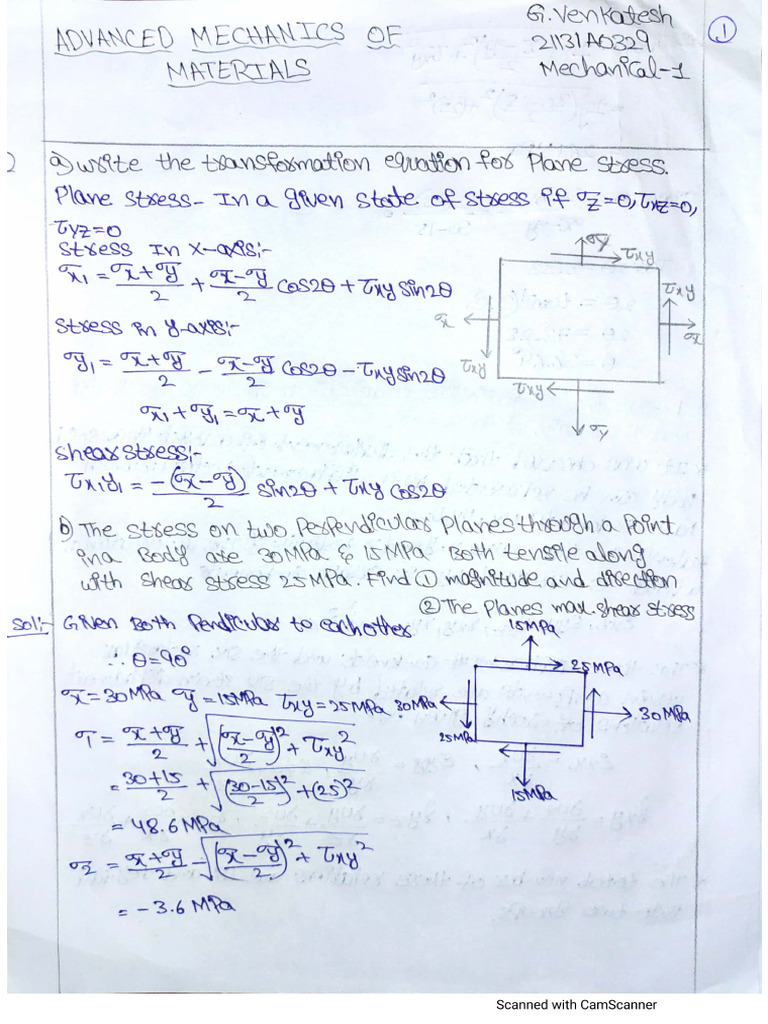 ADVANCED MECHANICS OF
MATERIALS
G. Venkatesh
21131A0329
Mechanical-1
1
a) Write the transformation equation for Plane stress.
Plane stress - In a given state of stress if σz=0, τxz=0,
τyz=0
stress In x-axis:-
σx1 = (σx+σy)/2 + (σx-σy)/2 cos2θ + τxy sin2θ
stress in y-axis:-
σy1 = (σx+σy)/2 - (σx-σy)/2 cos2θ - τxy sin2θ
σx1 + σy1 = σx + σy
shear stress:-
τx1y1 = -(σx-σy)/2 sin2θ + τxy cos2θ
σy
τxy
τxy
σx
σx
τxy
τxy
σy
b) The stress on two Perpendicular Planes through a Point
in a Body are 30MPa & 15MPa Both tensile along
with shear stress 25MPa. Find ① magnitude and direction
② The Planes max. shear stress
Sol:- Given Both Pendicular to each other
∴ θ=90°
σx=30MPa σy=15MPa τxy=25MPa
σ1 = (σx+σy)/2 + √(((σx-σy)/2)² + τxy²)
= (30+15)/2 + √(((30-15)/2)² + (25)²)
= 48.6MPa
σ2 = (σx+σy)/2 - √(((σx-σy)/2)² + τxy²)
= -3.6MPa
15MPa
25MPa
30MPa
30MPa
25MPa
15MPa
Scanned with CamScanner